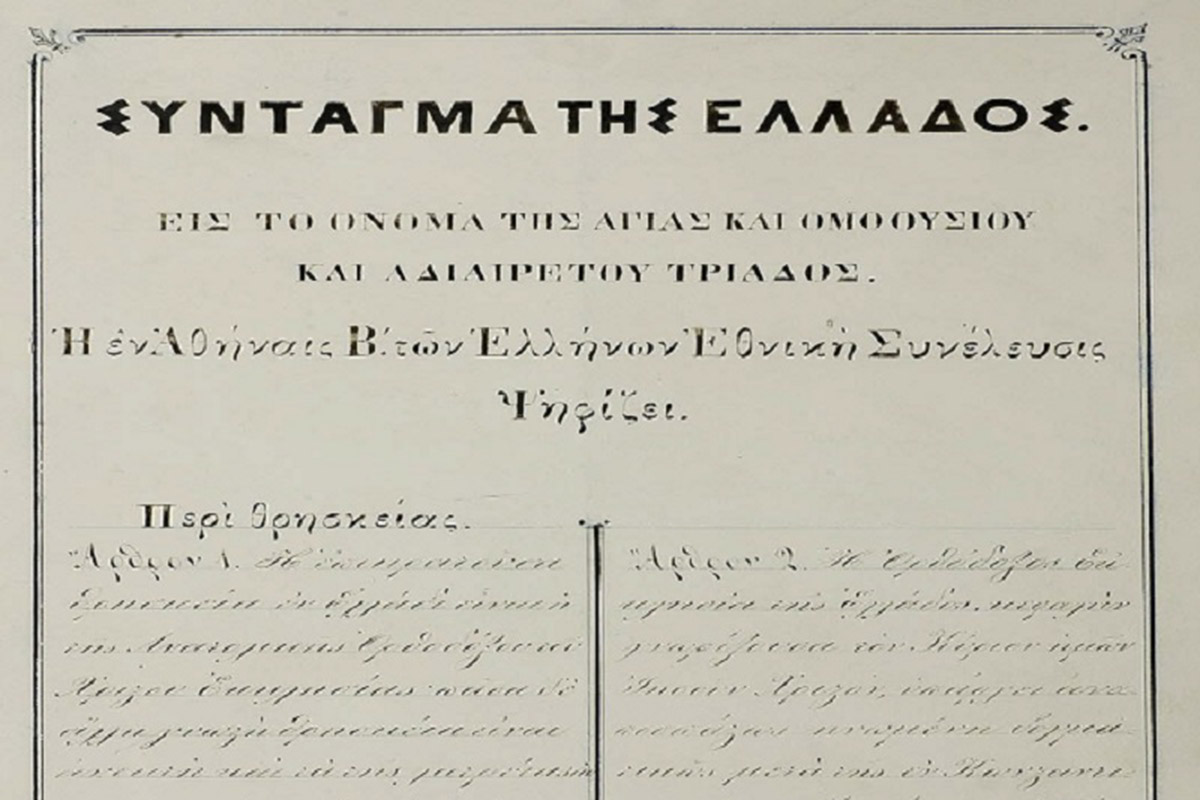 ΣΥΝΤΑΓΜΑ ΤΗΣ ΕΛΛΑΔΟΣ.
ΕΙΣ ΤΟ ΟΝΟΜΑ ΤΗΣ ΑΓΙΑΣ ΚΑΙ ΟΜΟΟΥΣΙΟΥ
ΚΑΙ ΑΔΙΑΙΡΕΤΟΥ ΤΡΙΑΔΟΣ.
Ἡ ἐν Ἀθήναις Β΄. τῶν Ἑλλήνων Ἐθνικὴ Συνέλευσις
Ψηφίζει.
Περὶ θρησκείας.
Ἄρθρον 1. Ἡ ἐπικρατοῦσα
θρησκεία ἐν Ἑλλάδι εἶναι ἡ
τῆς Ἀνατολικῆς Ὀρθοδόξου τοῦ
Χριστοῦ Ἐκκλησίας· πᾶσα δὲ
ἄλλη γνωστὴ θρησκεία εἶναι
ἀνεκτὴ καὶ τὰ τῆς
Ἄρθρον 2. Ἡ Ὀρθόδοξος Ἐκ-
κλησία τῆς Ἑλλάδος, κεφαλὴν
γνωρίζουσα τὸν Κύριον ἡμῶν
Ἰησοῦν Χριστόν, ὑπάρχει ἀνα-
ποσπάστως ἡνωμένη δογμα-
τικῶς μετὰ τῆς ἐν Κωνσταντι-